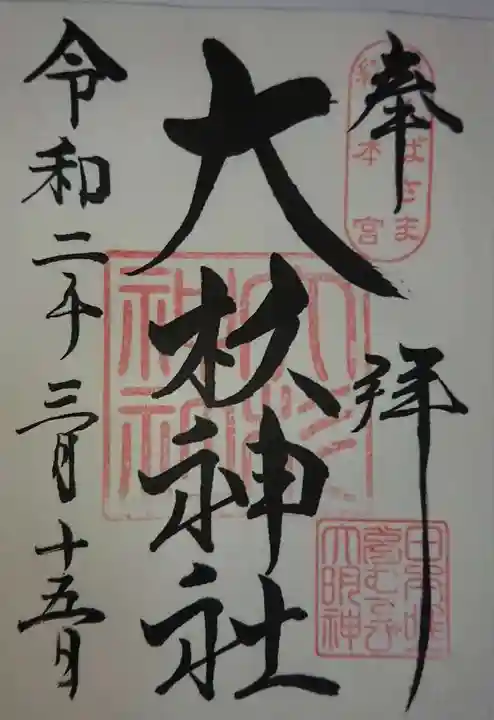 奉拝
あんばさま
総本宮
大杉神社
大杉神社
日本唯一
夢むすび
大明神
令和二年三月十五日